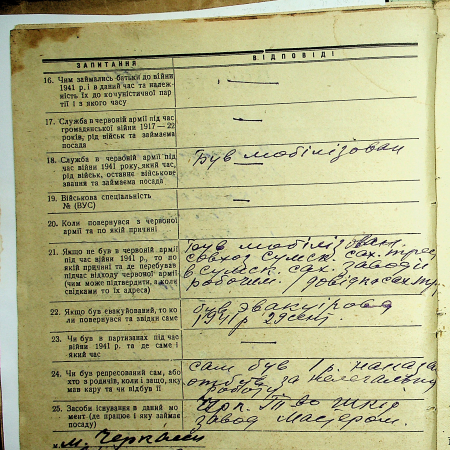 ЗАПИТАННЯ ВІДПОВІДІ
16. Чим займались батьки до війни
1941 р. і в даний час та належ-
ність їх до комуністичної пар-
тії і з якого часу
17. Служба в червоній армії під час
громадянської війни 1917—22
років, рід військ та займаєма
посада
18. Служба в червоній армії під
час війни 1941 року, який час,
рід військ, останнє військове
звання та займаєма посада
Був мобілізован
19. Військова спеціальність
№ (ВУС)
20. Коли повернувся з червоної
армії та по якій причині
21. Якщо не був в червоній армії
під час війни 1941 р., то по
якій причині та де перебував
підчас відходу червоної армії
(чим може підтвердити, а коли
свідками то їх адреса)
був мобілізован.
совхоз Сумск. сах. трес
в сумск. сах. заводі
робочим
22. Якщо був евакуйований, то ко-
ли повернувся та звідки саме
був эвакуірован
1941 р 29 сент.
23. Чи був в партизанах під час
війни 1941 р. та де саме і
який час
24. Чи був репресований сам, або
хто з родичів, коли і защо, яку
мав кару та чи відбув її
сам був 1 р.
отбув за нелегальну
роботу
25. Засоби існування в даний мо-
мент (де працює і яку займає
посаду)
завод мастером.
м. Черкаси